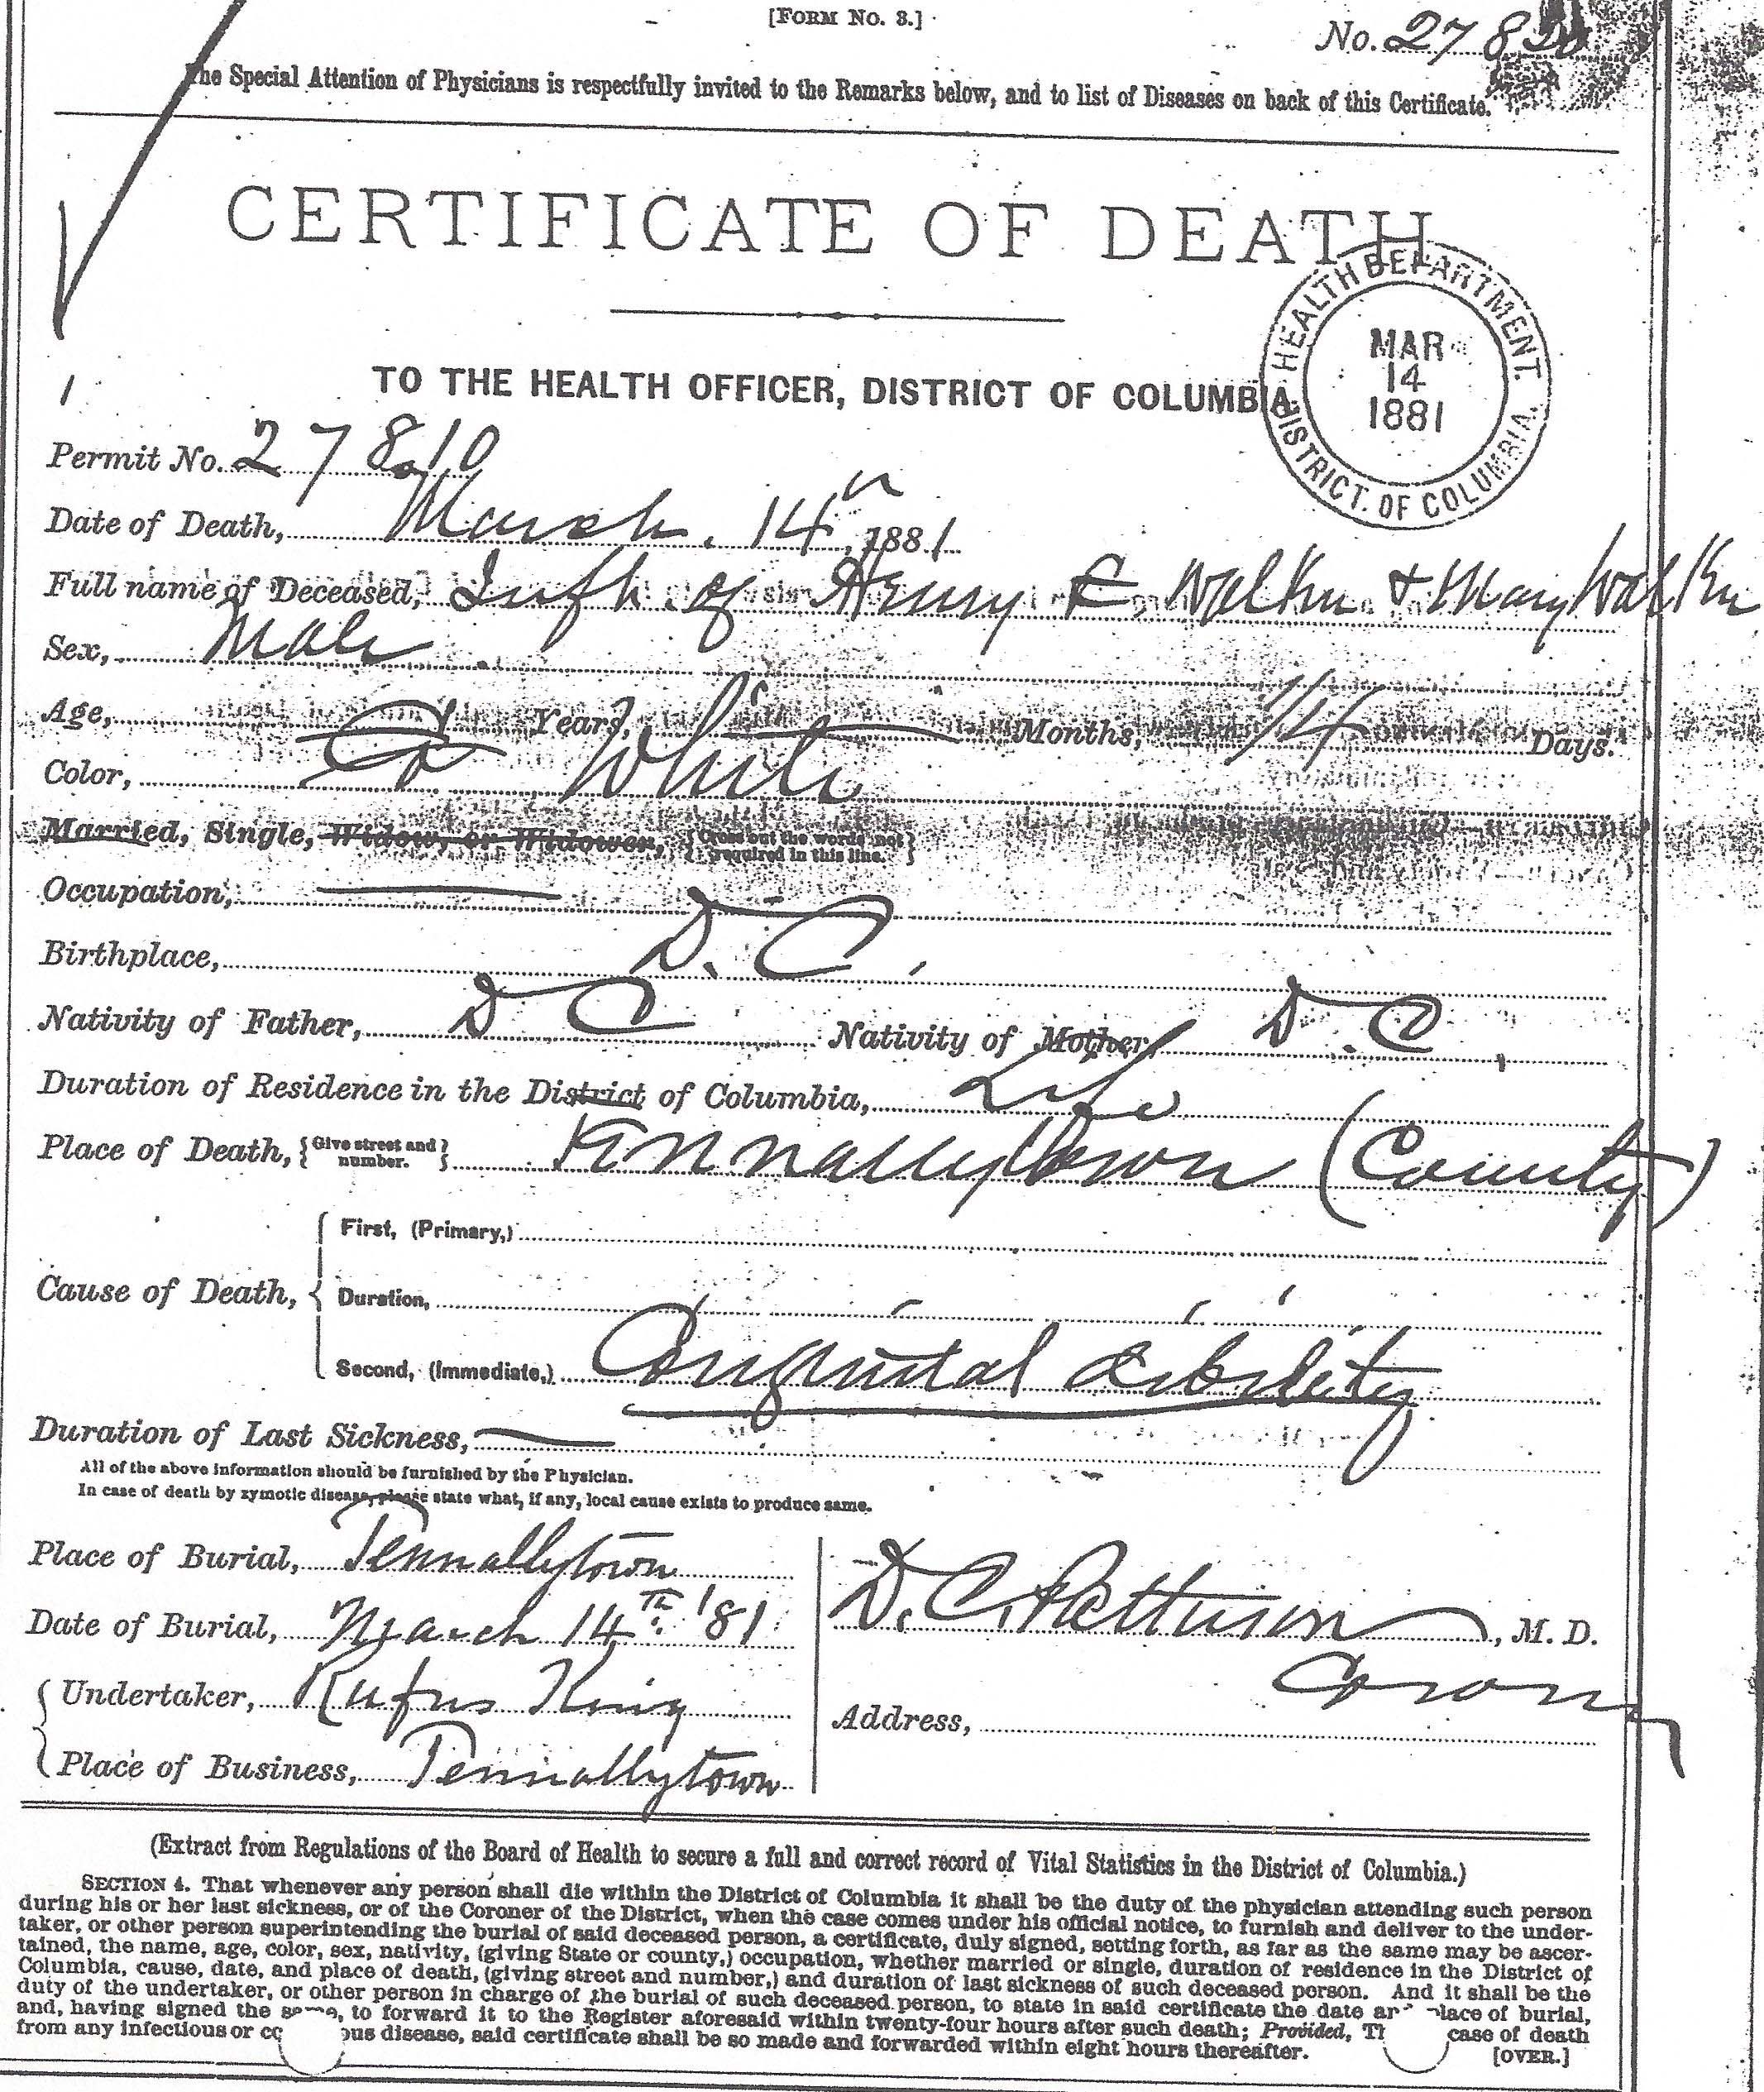 [FORM No. 3.]
No. 278
The Special Attention of Physicians is respectfully invited to the Remarks below, and to list of Diseases on back of this Certificate.
CERTIFICATE OF DEATH
HEALTH DEPARTMENT.
MAR
14
1881
DISTRICT. OF COLUMBIA.
TO THE HEALTH OFFICER, DISTRICT OF COLUMBIA.
Permit No. 27810
Date of Death, March. 14, 1881
Full name of Deceased, of Henry Walker & Mary Walker
Sex, Male
Age, Years, Months, 1/4 Days.
Color, White
Married, Single, Widow, or Widower, {Cross out the words not required in this line.}
Occupation,
Birthplace, D. C.
Nativity of Father, D C Nativity of Mother, D. C.
Duration of Residence in the District of Columbia, Life
Place of Death, {Give street and number.} Tennallytown (County)
Cause of Death, { First, (Primary,)
Duration,
Second, (Immediate,) Congenital debility
Duration of Last Sickness,
All of the above information should be furnished by the Physician.
In case of death by zymotic disease, please state what, if any, local cause exists to produce same.
Place of Burial, Tennallytown
Date of Burial, March 14th. '81
{ Undertaker, Rufus King
Place of Business, Tennallytown
D. C. Patterson, M. D.
Coroner
Address,
(Extract from Regulations of the Board of Health to secure a full and correct record of Vital Statistics in the District of Columbia.)
SECTION 4. That whenever any person shall die within the District of Columbia it shall be the duty of the physician attending such person
during his or her last sickness, or of the Coroner of the District, when the case comes under his official notice, to furnish and deliver to the under-
taker, or other person superintending the burial of said deceased person, a certificate, duly signed, setting forth, as far as the same may be ascer-
tained, the name, age, color, sex, nativity, (giving State or county,) occupation, whether married or single, duration of residence in the District of
Columbia, cause, date, and place of death, (giving street and number,) and duration of last sickness of such deceased person. And it shall be the
duty of the undertaker, or other person in charge of the burial of such deceased person, to state in said certificate the date and place of burial,
and, having signed the same, to forward it to the Register aforesaid within twenty-four hours after such death; Provided, case of death
from any infectious or disease, said certificate shall be so made and forwarded within eight hours thereafter.
[OVER.]